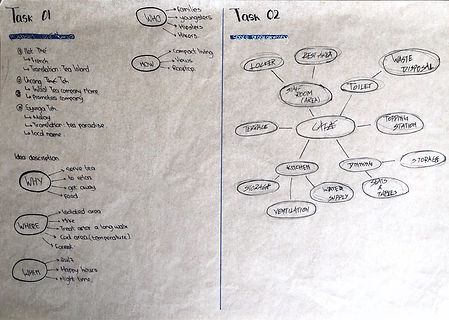 Task 01
Translation: Tea Island
Malay
Translation: tea paradise
local name
Idea description
WHY
serve tea
to relax
get away
Food
WHERE
Isolated area
Hike
Treat after a long walk
Cool area (temperature)
Forest
WHEN
24/7
Happy hours
Night time
WHO
Families
Youngsters
Hipsters
Hikers
HOW
Compact living
Views
Rooftop
Task 02
LOCKER
REST AREA
WASTE DISPOSAL
STAFF ROOM (AREA)
TOILET
TERRACE
CAFÉ
TOPPING STATION
KITCHEN
DINNING
STORAGE
STORAGE
WATER SUPPLY
SEATS & TABLES
VENTILATION